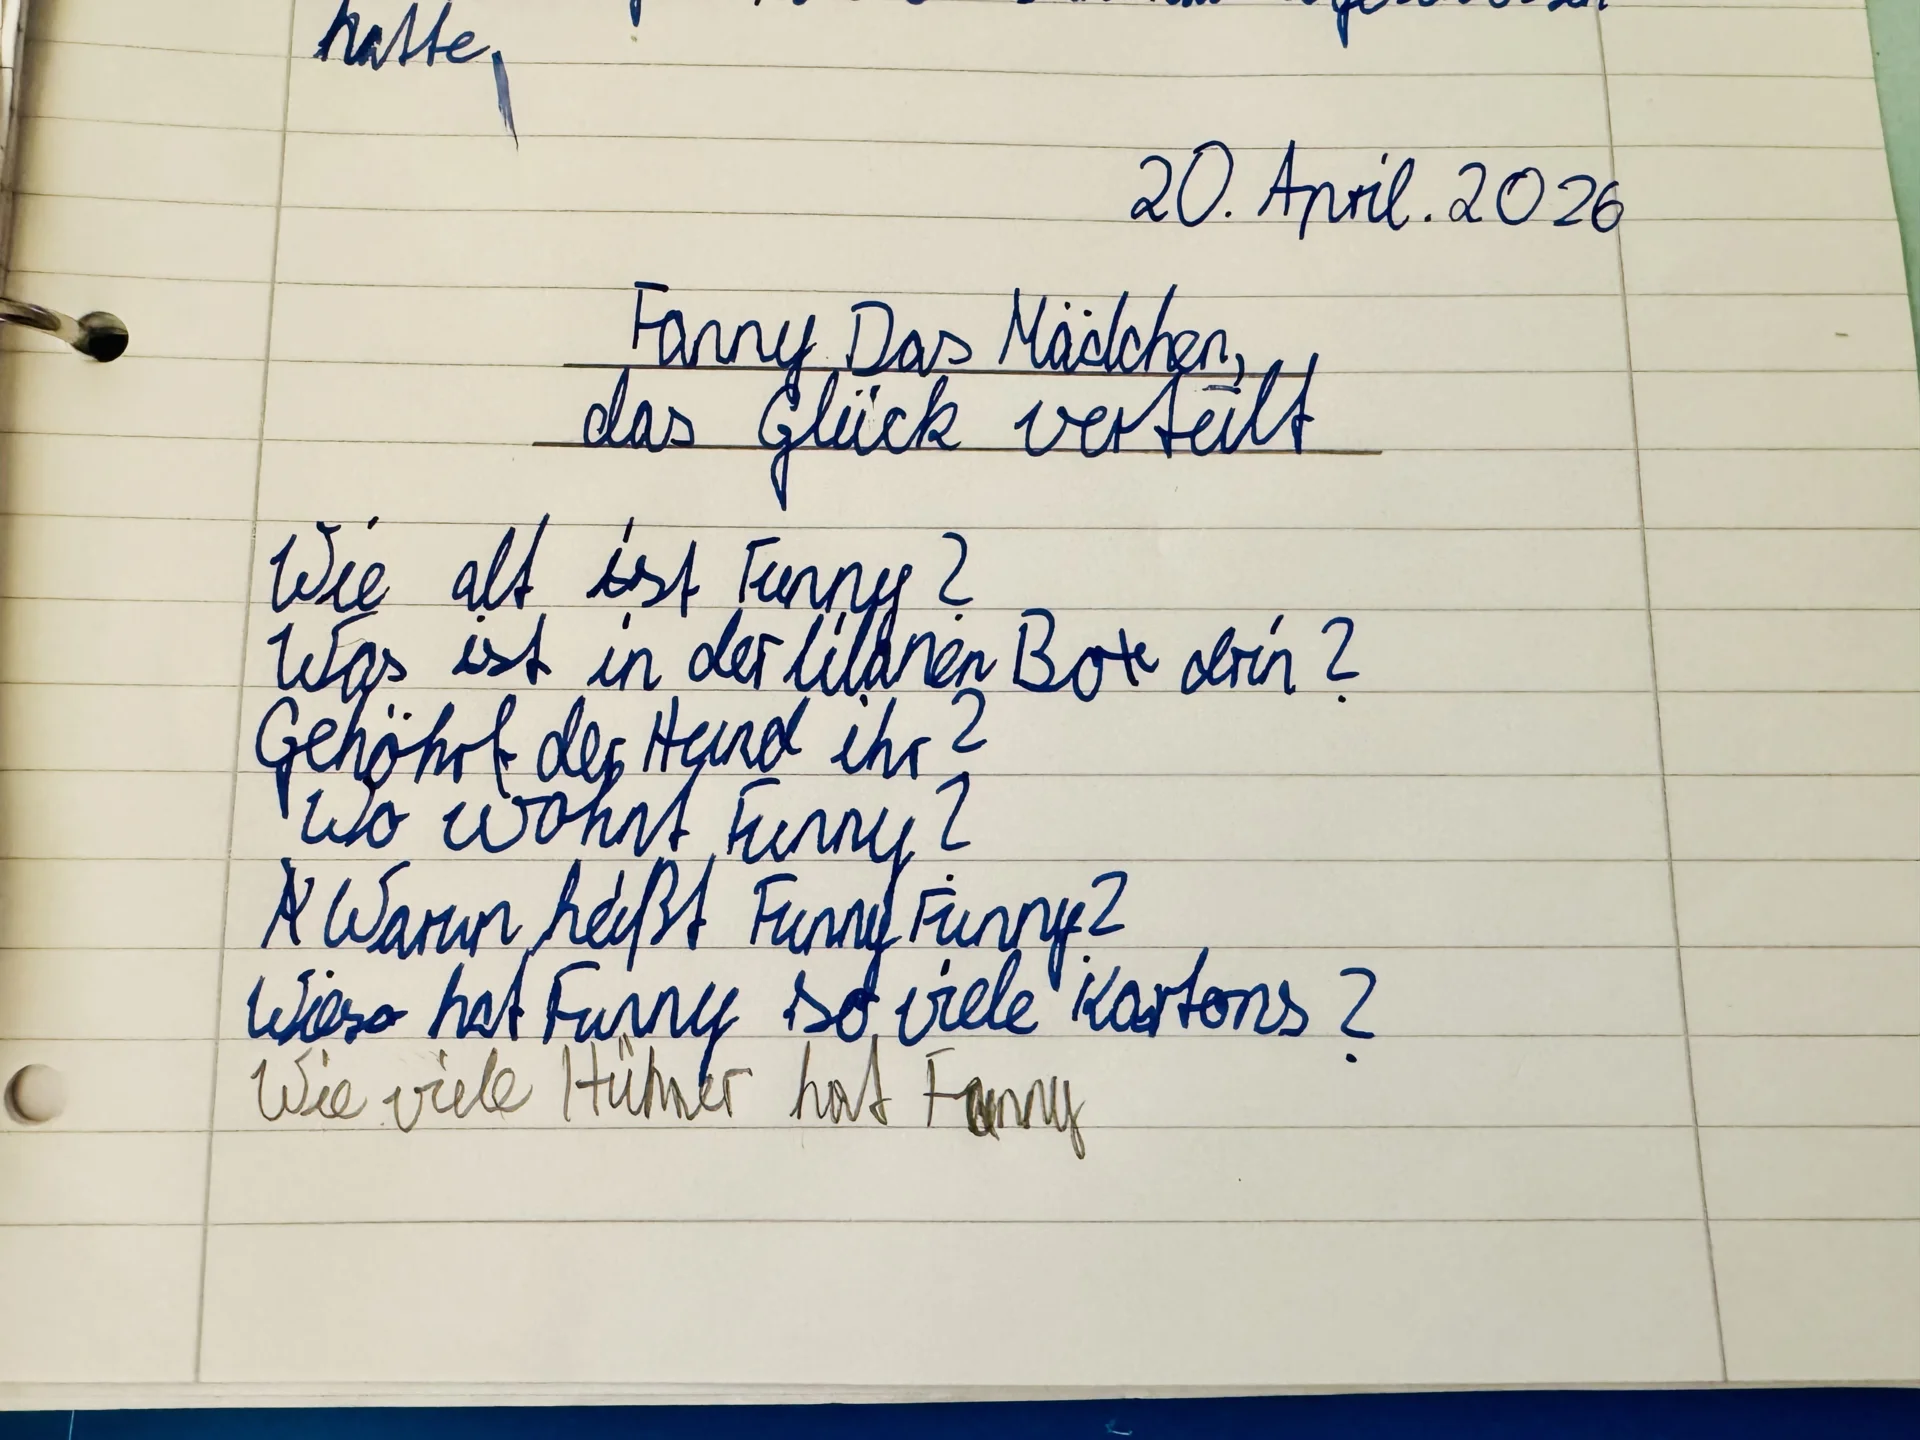 hatte,
20. April. 2026
Fanny Das Mädchen,
das Glück verteilt
Wie alt ist Funny?
Was ist in der lilanen Box drin?
Gehöhrt der Hund ihr?
Wo wohnt Funny?
Warum heißt Funny Funny?
Wieso hat Funny so viele Kartons?
Wie viele Hühner hat Fanny